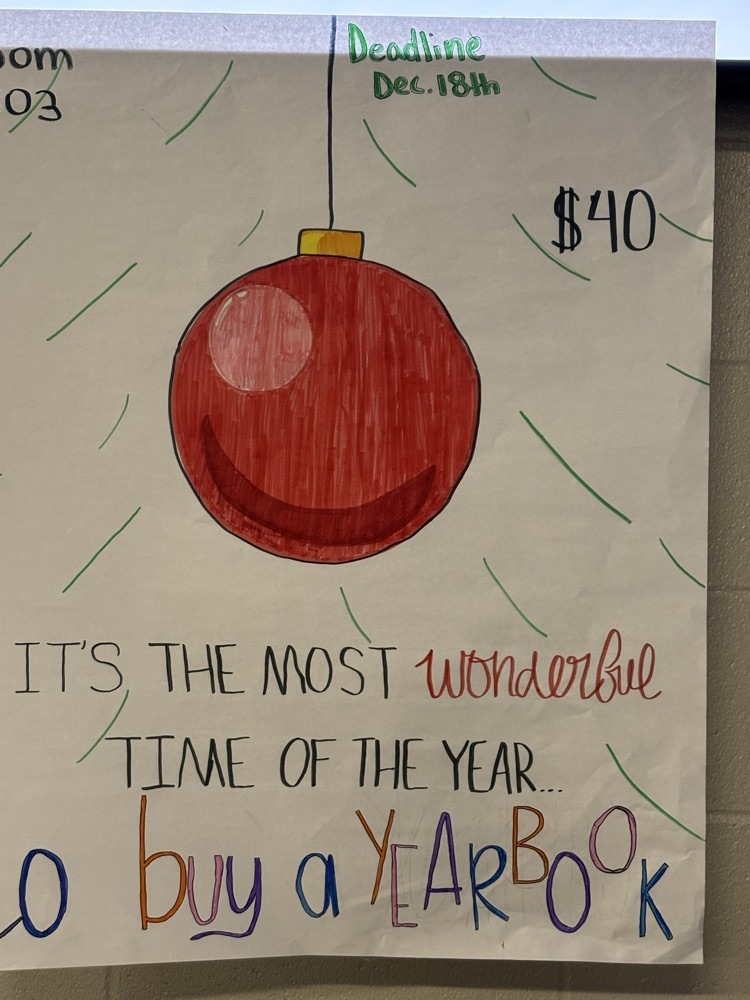 Deadline
Dec. 18th
03
$40
IT'S THE MOST wonderful
TIME OF THE YEAR...
buy a YEARBOOK